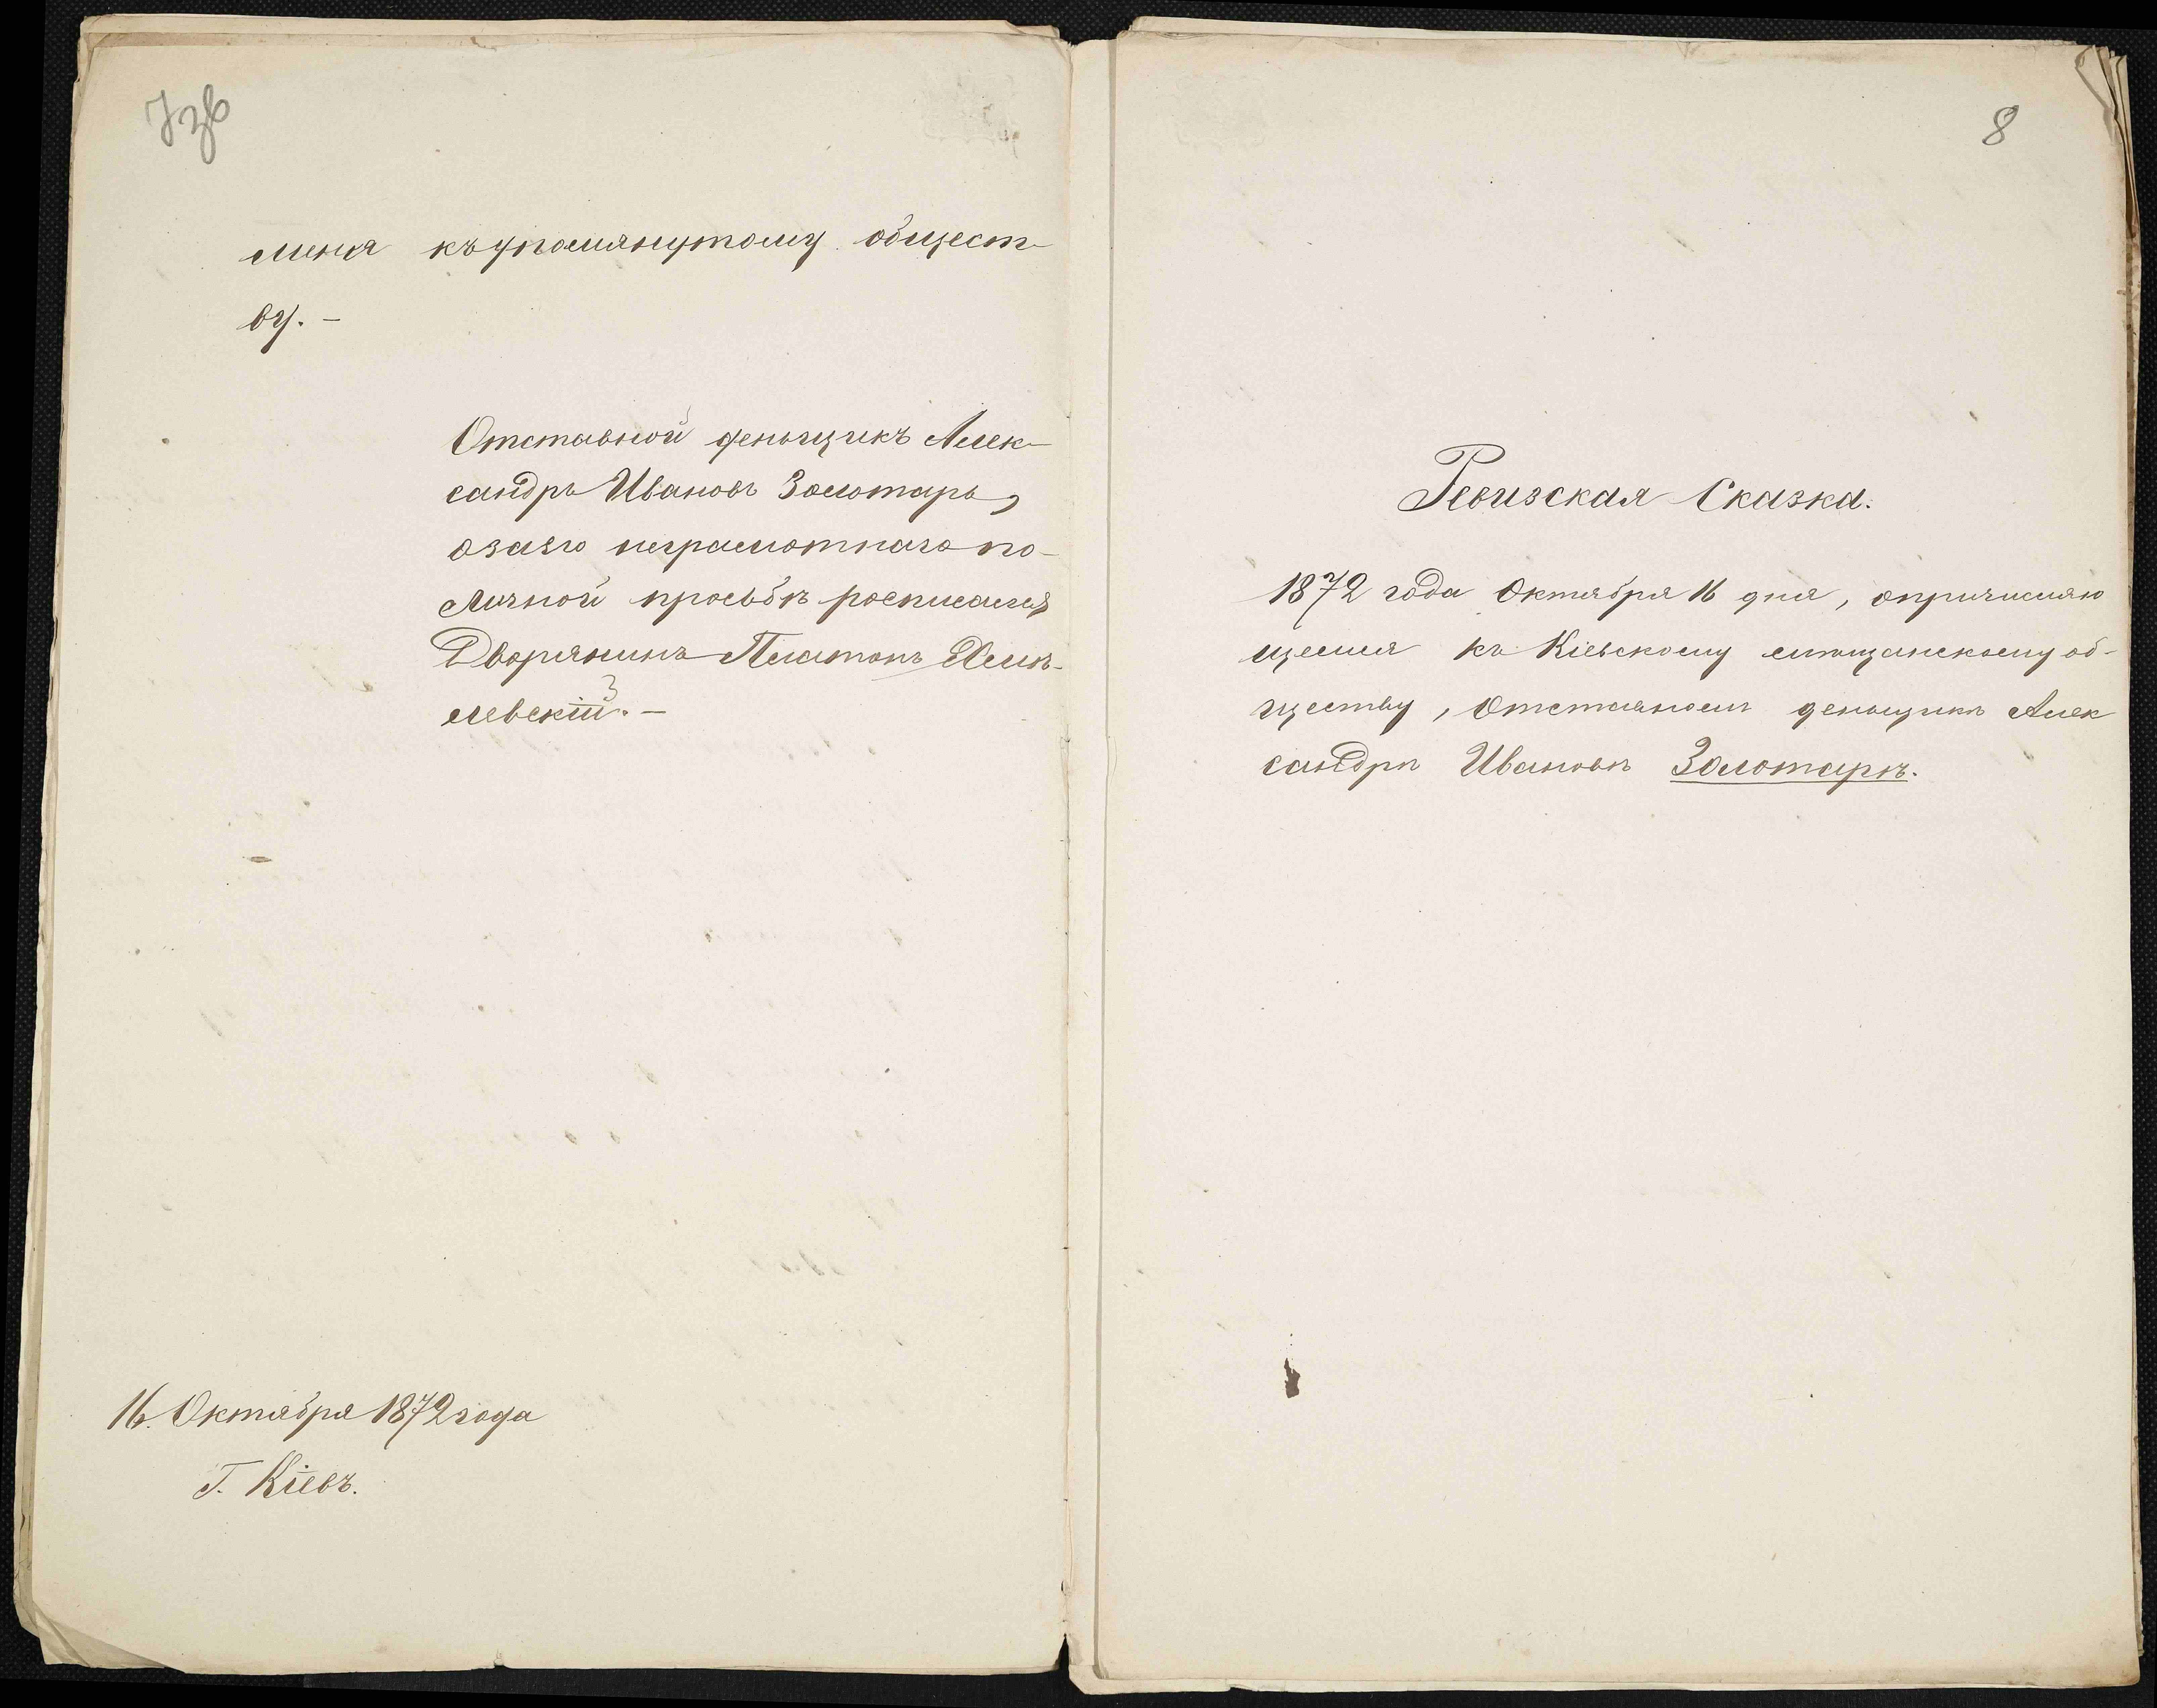 7зв
мена къ упомянутому общест-
ву. –
Отставной деньщикъ Алек-
сандръ Ивановъ Золотарь,
а за его неграмотнаго по
личной просьбѣ росписался
Дворянинъ Платонъ
левскій. –
16. Октября 1872 года
Г. Кіевъ.
8
Ревизская Сказка.
1872 года Октября 16 дня, о причисляю
щемся къ Кіевскому мѣщанскому об-
ществу, Отставномъ деньщикѣ Алек
сандрѣ Ивановѣ Золотарѣ.